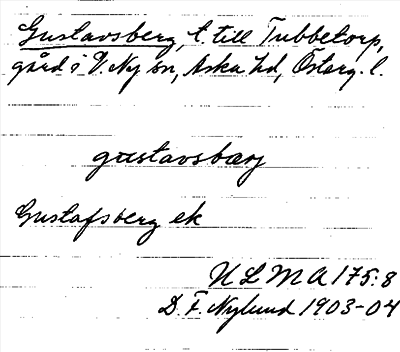 Gustavsberg, t. till Tubbetorp,
gård i V. Ny sn, Aska hd, Österg. l.
gustavsbærj
Gustafsberg ek
ULMA 175:8
D. F. Nylund 1903-04